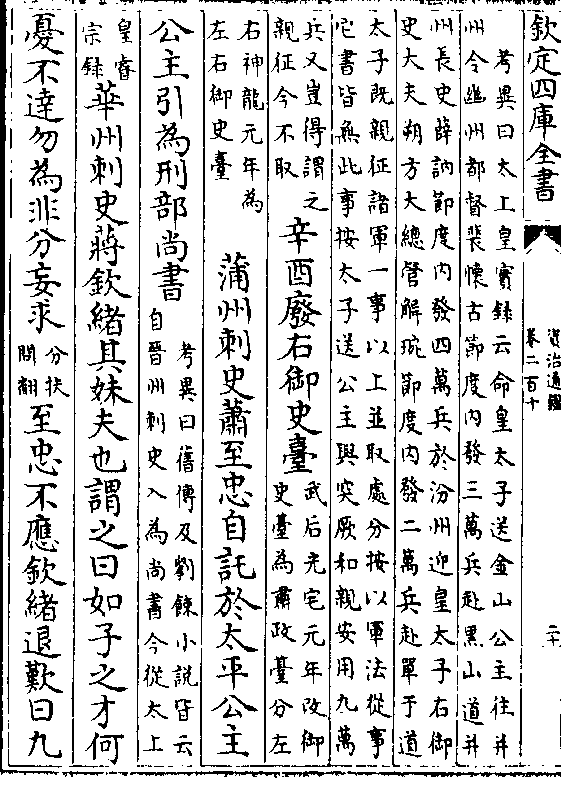 欽定四庫全書
資治通鑑
卷二百十
二十
考異曰太上皇實録云命皇太子送金山公主往并
州令幽州都督裴懷古節度内發三萬兵赴黑山道并
州長史薛訥節度内發四萬兵於汾州迎皇太子右御
史大夫朔方大總管解琬節度内發二萬兵赴單于道
太子既親征諸軍一事以上並取處分按以軍法從事
它書皆無此事按太子送公主與突厥和親安用九萬
兵又豈得謂之
親征今不取
辛酉廢右御史臺
武后光宅元年改御
史臺為肅政臺分左
右神龍元年為
左右御史臺
蒲州刺史蕭至忠自託於太平公主
公主引為刑部尚書
考異曰舊傳及劉餗小説皆云
自晉州刺史入為尚書今從太上
皇睿
宗録
華州刺史蔣欽緒其妹夫也謂之曰如子之才何
憂不達勿為非分妄求
分扶
問翻
至忠不應欽緒退歎曰九